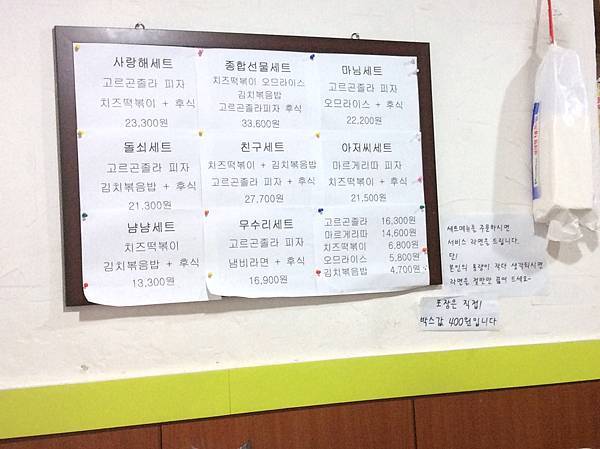 사랑해세트
고르곤졸라 피자
치즈떡볶이 + 후식
23,300원
종합선물세트
치즈떡볶이 오므라이스
김치볶음밥
고르곤졸라피자 후식
33,600원
마님세트
고르곤졸라 피자
오므라이스 + 후식
22,200원
돌쇠세트
고르곤졸라 피자
김치볶음밥 + 후식
21,300원
친구세트
치즈떡볶이 + 김치볶음밥
고르곤졸라 피자 + 후식
27,700원
아저씨세트
마르게리따 피자
치즈떡볶이 + 후식
21,500원
냠냠세트
치즈떡볶이
김치볶음밥 + 후식
13,300원
무수리세트
고르곤졸라 피자
냄비라면 + 후식
16,900원
고르곤졸라 16,300원
마르게리따 14,600원
치즈떡볶이 6,800원
오므라이스 5,800원
김치볶음밥 4,700원
세트메뉴를 주문하시면
서비스 라면을 드립니다.
단!
본인의 통량이 작다 생각되시면
라면을 절반만 끓여 드세요~
포장은 직접!
박스값 400원입니다